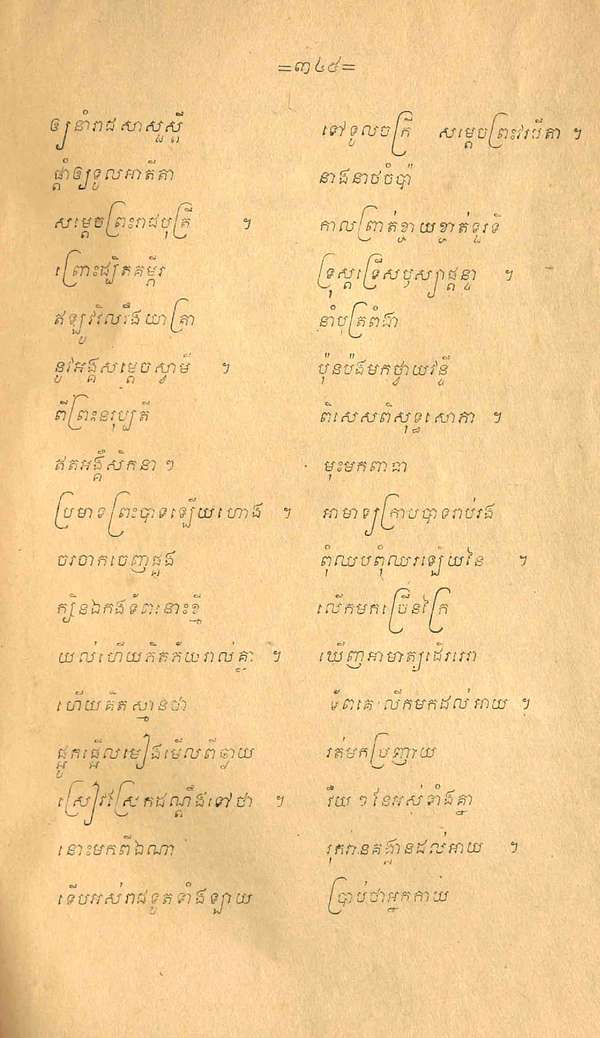 =៣៤៥=
ឲ្យនាំរាជសាសួស្ដី ទៅទូលចក្រី សម្ដេចព្រះវរបីតា ។
ផ្ដាំឲ្យទូលអាតីតា នាងនាថចំប៉ា
សម្ដេចព្រះរាជបុត្រី ។ កាលព្រាត់ខ្ចាយខ្ចាត់ទួរទី
ព្រោះផ្បិតគម្ពីរ ទ្រុស្តទ្រើសឫស្យាផ្ដន្ទា ។
ឥឡូវវិលវឹងយាត្រា នាំបុត្រពំងា
នូវអង្គសម្ដេចស្វាមី ។ ប៉ុនប៉ងមកថ្វាយវន្ទី
ពីព្រះនរុប្បតី ពិសេសពិសុទ្ធសោភា ។
ឥតអង្គើសិកនា ៗ មុះមកពាធា
ប្រមាទព្រះបាទឡើយហោង ។ អាមាទ្យក្រាបបាទរាប់រង
ចរចាកចេញផ្លូង ពុំឈបពុំឈរឡើយនៃ ។
ក្បិនឯកងទ័ពនោះខ្មី លើកមកប្រើនក្រៃ
យល់ហើយភិតភ័យរាល់គ្នា ។ ឃើញអាមាត្យដើររេរា
ហើយគិតស្មានថា ទ័ពគេលើកមកដល់អាយ ។
ផ្អូកផ្អើលមៀងមើលពីឆ្ងាយ រត់មកប្រញាយ
ស្រៀវស្រែកដណ្ដឹងទៅថា ។ វើយ ៗ នែអស់ទាំងគ្នា
នោះមកពីឯណា រុករានគង្គានដល់អាយ ។
ទើបអស់រាជទូតទាំងឡាយ ប្រាប់ថាអ្នកកាយ